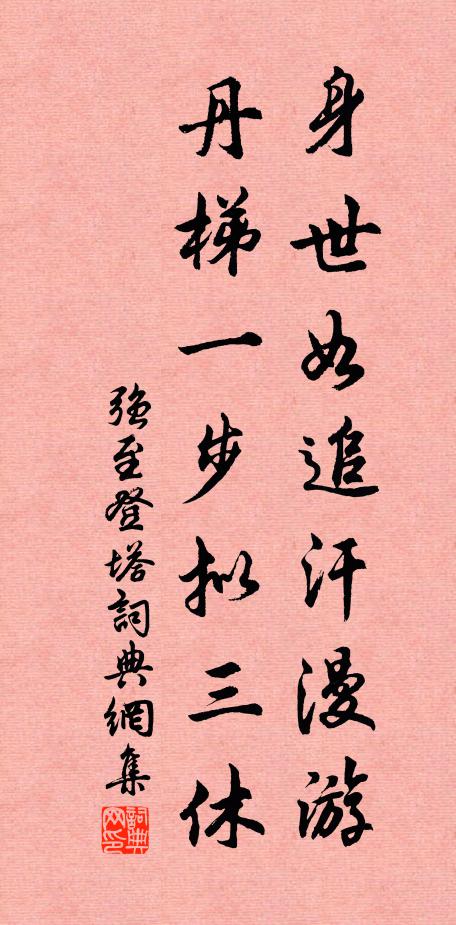 身世如追汗漫游
丹梯一步拟三休
强至登塔詞典網集
詞典网印